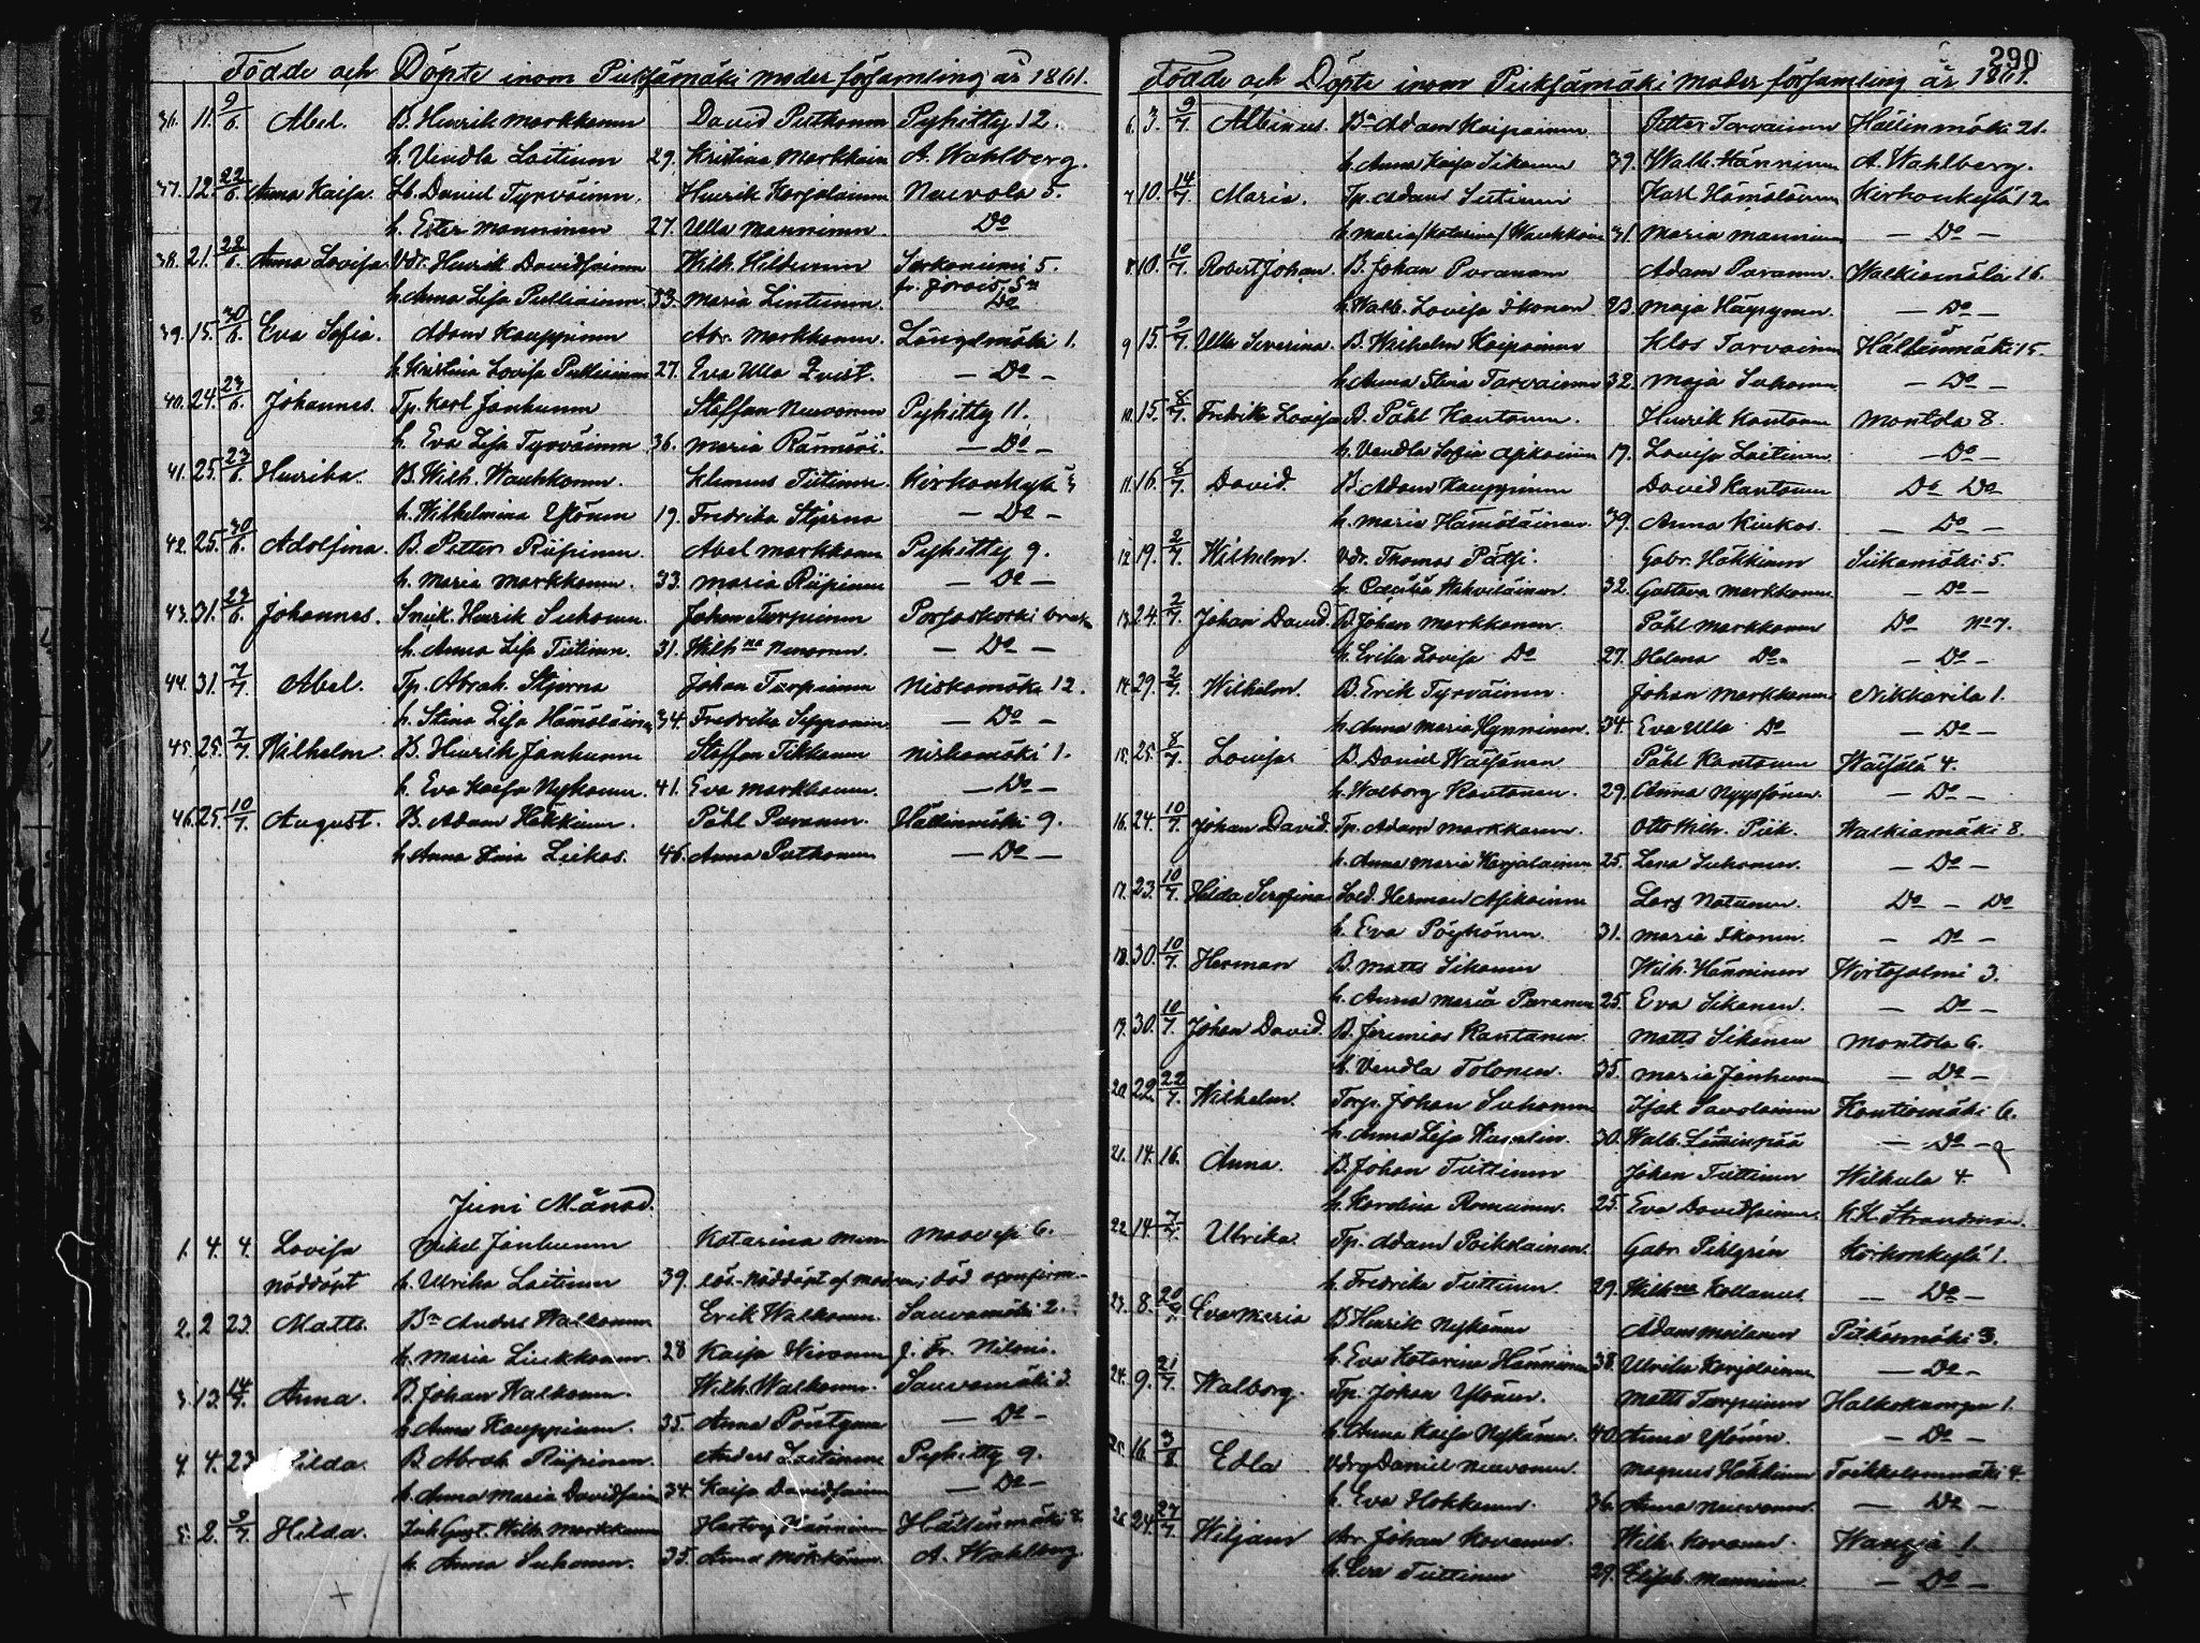 290
Födde och Döpte inom Pieksämäki moder församling år 1861.
36. 11. 9/6. Abel. B. Henrik Markkanen David Putkonen Pyhitty 12.
h. Vendla Laitinen 29. Kristina Markkain A. Wahlberg.
37. 12. 22/6. Anna Kaisa. Lb. Daniel Tyrväinen. Henrik Karjalainen Neuvola 5.
h. Ester Manninen 27. Ulla Manninen. Do
38. 21. 28/6. Anna Lovisa. Vdr. Henrik Davidsainen Wilh. Hildunen 5.
h. Anna Lisa Pulliainen. 33. Maria Lintunen. fr. Jorois Do
39. 15. 30/6. Eva Sofia. Adam Kauppinen Abr. Markkanen. Längdmäki 1.
h. Kristina Lovisa Pulliainen 27. Eva Ulla Qvist. — Do —
40. 24. 23/6. Johannes. Tp. Karl Janhunen Staffan Neuvonen Pyhitty 11.
h. Eva Lisa Tyrväinen 36. Maria — Do —
41. 25. 23/6. Henrika. B. Wilh. Wauhkonen. Klemens Tiitinen. Kirkonkylä
h. Wilhelmina Ylönen 19. Fredrika Stjerna — Do —
42. 25. 30/6. Adolfina. B. Petter Riipinen. Abel Markkanen Pyhitty 9.
h. Maria Markkanen. 33. Maria Riipinen — Do —
43. 31. 23/6. Johannes. Smik. Henrik Suhonen. Johan Turpeinen Porsaskoski bruk
h. Anna Lisa Tiitinen. 31. Wilhna Neuvonen. — Do —
44. 31. 7/7. Abel. Tp. Abrah. Stjerna Johan Turpeinen Niskamäki 12.
h. Stina Lisa Hämäläinen 34. Fredrika Seppänen — Do —
45. 25. 7/7. Wilhelm. B. Henrik Janhunen Staffan Tikkanen Niskamäki 1.
h. Eva Kaisa Nykänen. 41. Eva Markkanen. — Do —
46. 25. 10/7. August. B. Adam Häkkinen. Påhl Paranen. Hällinmäki 9.
h. Anna Stina Liikas. 46. Anna Putkonen — Do —
Juni Månad.
1. 4. 4. Lovisa Mikel Janhunen Katarina 6.
nöddöpt h. Ulrika Laitinen 39. nöddöpt af död
2. 2 23. Matts. Bn Anders Walkonen Erik Walkonen. Sauvamäki 2.
h. Maria Liukkonen. 28 Kaisa Hirvonen J. Fr. Niloni.
3. 13. 14/7. Anna. B. Johan Walkonen. Wilh. Walkonen. Sauvamäki 3.
h. Anna Kauppinen. 35. Anna Pöntynen — Do —
4. 4. 23 Hilda. B. Abrah Riipinen. Anders Laitinen Pyhitty 9.
h. Anna Maria Davidsain 34. Kaisa Davidsainen — Do —
5. 2. 9/7. Hilda. Gust. Wilh. Markkanen Hartvig Hänninen Hällinmäki
h. Anna Suhonen. 35. Anna Mökkönen. A. Wahlberg.
Födde och Döpte inom Pieksämäki moder församling år 1861.
6. 3. 9/7. Albinus. Bn Adam Kaipainen Petter Tarvainen Hällinmäki 21.
h. Anna Kaisa Sikanen 39. Walb. Hänninen A. Wahlberg.
7 10. 14/7. Maria. Tp. Adam Sutinen Karl Hämäläinen Kirkonkylä 12
h. Maria /Katarina/ Wauhkoin 31. Maria Manninen — Do —
8. 10. 10/7. Robert Johan. B. Johan Paranen Adam Paranen. Walkiamäki 16.
h. Walb. Lovisa Ikonen 23. Maja Häyrynen. — Do —
9 15. 9/7. Ulla Severina. B. Wilhelm Kaipainen Klas Tarvainen Hällinmäki 15.
h. Anna Stina Tarvainen 32. Maja Suhonen — Do —
10. 15. 8/7. Fredrika Lovisa B. Påhl Kantanen. Henrik Kantanen Montola 8.
h. Vendla Sofia Asikainen 19. Lovisa Laitinen. — Do —
11. 16. 8/7. David. B. Adam Kauppinen David Kantanen Do Do
h. Maria Hämäläinen. 39. Anna Kiukas. — Do —
12. 19. 2/7. Wilhelm. Vdr. Thomas Pätsi. Gabr. Häkkinen Siikamäki 5.
h. Cæcilia 32. Gustava Markkanen. — Do —
13. 24. 2/7. Johan David. B. Johan Markkanen. Påhl Markkanen Do No 7.
h. Erika Lovisa Do 27. Helena Do. — Do —
14. 29. 2/7. Wilhelm. B. Erik Tyrväinen. Johan Markkanen Nikkarila 1.
h. Anna Maria Hynninen. 34. Eva Ulla Do — Do —
15. 25. 8/7. Lovisa. B. Daniel Wäisänen. Påhl Kantanen Waisälä 4.
h. Walborg Kantanen. 29. Anna Nyyssönen. — Do —
16. 24. 10/7. Johan David. Tp. Adam Markkanen. Otto Wilh. Piik. Walkiamäki 8.
h. Anna Maria Karjalainen 25. Lena Suhonen. — Do —
17. 23. 10/7. Hilda Serafina Sold. Herman Asikainen Lars Natunen. Do — Do
h. Eva Pöyhönen. 31. Maria Ikonen. — Do —
18. 30. 10/7. Herman B. Matts Sikanen Wilh. Hänninen Wirtasalmi 3.
h. Anna Maria Paranen 25. Eva Sikanen. — Do —
19. 30. 10/7. Johan David. B. Jeremias Kantanen. Matts Sikanen Montola 6.
h. Vendla Tolonen. 35. Maria Janhunen — Do —
20. 22. 22/7. Wilhelm. Torp. Johan Suhonen Isak Savolainen Kontiomäki 6.
h. Anna Lisa 30. Walb. — Do —
21. 14. 16. Anna. B. Johan Tiittinen Johan Tiittinen Wilhula 4.
h. Karolina Romanen. 25. Eva Davidsainen. K. H. Strandman.
22. 14. 7/7. Ulrika. Tp. Adam Poikolainen. Gabr. Pihlgrén Kirkonkylä 1.
h. Fredrika Tiittinen. 29. Wilhna Kollanus. — Do —
23. 8. 20/7. Eva Maria B. Henrik Nykänen Adam Moilanen Pitkämäki 3.
h. Eva Katarina Hänninen 38. Ulrika Karjalainen — Do —
24. 9. 21/7. Walborg. Tp. Johan Ylönen. Matts Turpeinen Halkokumpu 1.
h. Anna Kaisa Nykänen. 40. Anna Ylönen. — Do —
25. 16. 3/8 Edla Vdrg Daniel Neuvonen. Magnus Häkkinen Toikkolanmäki 4.
h. Eva Hokkanen. 36. Anna Neuvonen. — Do —
26. 24. 27/7. Wiljam Johan Kovanen Wilh. Kovanen. Wangja 1.
h. Eva Tiittinen 29. Elisab. Manninen. — Do —